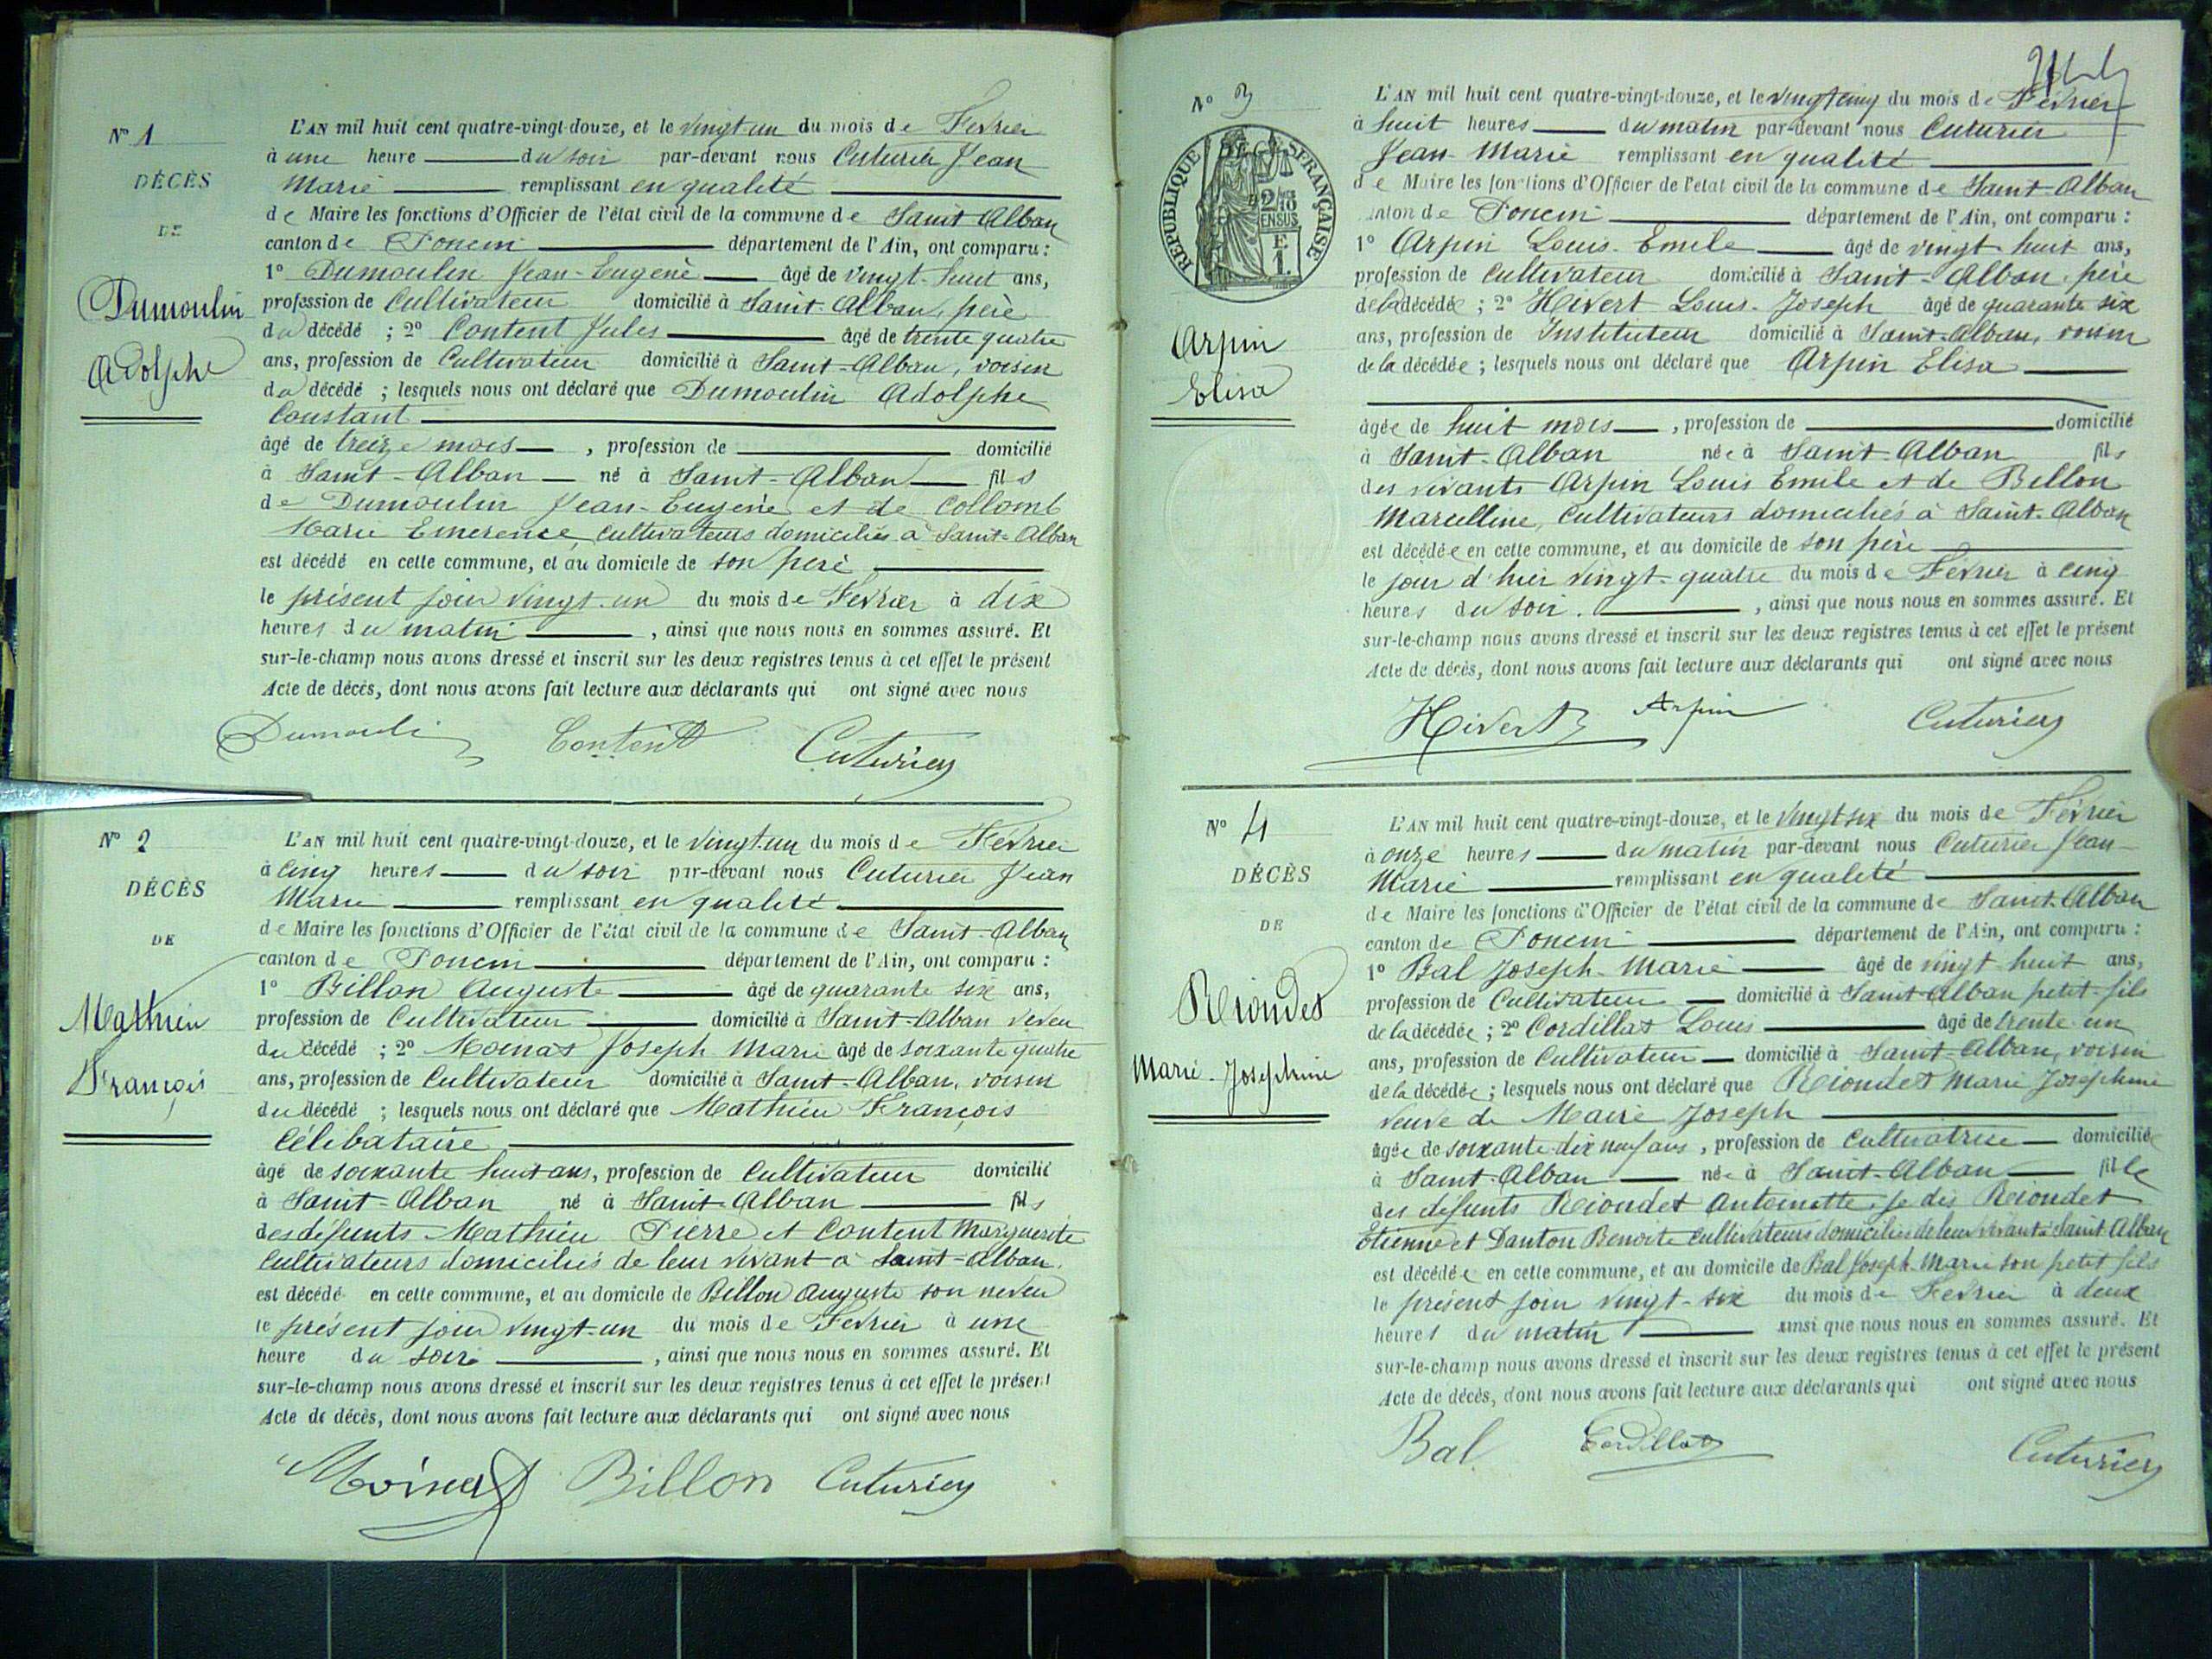 N° 1
DÉCÈS
DE
Dumoulin
Adolphe
L'AN mil huit cent quatre-vingt-douze, et le vingt-un du mois de Fevrier
à une heure du soir par-devant nous Cuturier Jean
Marie remplissant en qualité
de Maire les fonctions d'Officier de l'état civil de la commune de Saint-Alban
canton de Poncin département de l'Ain, ont comparu :
1° Dumoulin Jean-Eugène âgé de vingt-huit ans,
profession de Cultivateur domicilié à Saint-Alban, père
du décédé ; 2° Content Jules âgé de trente quatre
ans, profession de Cultivateur domicilié à Saint-Alban, voisin
du décédé ; lesquels nous ont déclaré que Dumoulin Adolphe
Constant
âgé de treize mois , profession de domicilié
à Saint-Alban né à Saint-Alban fils
de Dumoulin Jean-Eugène et de Collomb
Marie Emerence, cultivateurs domiciliés à Saint-Alban
est décédé en cette commune, et au domicile de son père
le présent jour vingt-un du mois de Fevrier à dix
heures du matin , ainsi que nous nous en sommes assuré. Et
sur-le-champ nous avons dressé et inscrit sur les deux registres tenus à cet effet le présent
Acte de décès, dont nous avons fait lecture aux déclarants qui ont signé avec nous
Dumouli Content Cuturier
N° 2
DÉCÈS
DE
Mathieu
François
L'AN mil huit cent quatre-vingt-douze, et le vingt-un du mois de Février
à cinq heures du soir par-devant nous Cuturier Jean
Marie remplissant en qualité
de Maire les fonctions d'Officier de l'état civil de la commune de Saint-Alban
canton de Poncin département de l'Ain, ont comparu :
1° Billon Auguste âgé de quarante six ans,
profession de Cultivateur domicilié à Saint-Alban neveu
du décédé ; 2° Moinat Joseph Marie âgé de soixante quatre
ans, profession de Cultivateur domicilié à Saint-Alban, voisin
du décédé ; lesquels nous ont déclaré que Mathieu François
Célibataire
âgé de soixante huit ans, profession de Cultivateur domicilié
à Saint-Alban né à Saint-Alban fils
des défunts Mathieu Pierre et Content Marguerite
Cultivateurs domiciliés de leur vivant à Saint-Alban.
est décédé en cette commune, et au domicile de Billon Auguste son neveu
le présent jour vingt-un du mois de Fevrier à une
heure du soir , ainsi que nous nous en sommes assuré. Et
sur-le-champ nous avons dressé et inscrit sur les deux registres tenus à cet effet le présent
Acte de décès, dont nous avons fait lecture aux déclarants qui ont signé avec nous
Moinat Billon Cuturier
N° 3
RÉPUBLIQUE FRANÇAISE
2/10
EN SUS
E
1.
Arpin
Elisa
L'AN mil huit cent quatre-vingt-douze, et le vingt cinq du mois de Février
à huit heures du matin par-devant nous Cuturier
Jean-Marie remplissant en qualité
de Maire les fonctions d'Officier de l'état civil de la commune de Saint-Alban
canton de Poncin département de l'Ain, ont comparu :
1° Arpin Louis-Emile âgé de vingt-huit ans,
profession de cultivateur domicilié à Saint-Alban père
de la décédée ; 2° Hivert Louis-Joseph âgé de quarante six
ans, profession de Instituteur domicilié à Saint-Alban, voisin
de la décédée ; lesquels nous ont déclaré que Arpin Elisa
âgée de huit mois , profession de domicilié
à Saint-Alban née à Saint-Alban fils
des vivants Arpin Louis Emile et de Billon
Marcelline, Cultivateurs domiciliés à Saint-Alban
est décédée en cette commune, et au domicile de son père
le jour d'hier vingt-quatre du mois de Fevrier à cinq
heures du soir. , ainsi que nous nous en sommes assuré. Et
sur-le-champ nous avons dressé et inscrit sur les deux registres tenus à cet effet le présent
Acte de décès, dont nous avons fait lecture aux déclarants qui ont signé avec nous
Hivert Arpin Cuturier
N° 4
DÉCÈS
DE
Riondet
Marie-Joséphine
L'AN mil huit cent quatre-vingt-douze, et le vingt six du mois de Février
à onze heures du matin par-devant nous Cuturier Jean-
Marie remplissant en qualité
de Maire les fonctions d'Officier de l'état civil de la commune de Saint-Alban
canton de Poncin département de l'Ain, ont comparu :
1° Bal Joseph-Marie âgé de vingt-huit ans,
profession de Cultivateur domicilié à Saint-Alban petit-fils
de la décédée ; 2° Cordillat Louis âgé de trente-un
ans, profession de Cultivateur domicilié à Saint-Alban, voisin
de la décédée ; lesquels nous ont déclaré que Riondet Marie Joséphine
veuve de Maire Joseph
âgée de soixante-dix neuf ans , profession de Cultivatrice domiciliée
à Saint-Alban née à Saint-Alban fille
des défunts Riondet Antoinette, je dis Riondet
Etienne et Danton Benoite cultivateurs domiciliés de leur vivant à Saint-Alban
est décédée en cette commune, et au domicile de Bal Joseph-Marie son petit fils
le présent jour vingt-six du mois de Fevrier à deux
heures du matin ainsi que nous nous en sommes assuré. Et
sur-le-champ nous avons dressé et inscrit sur les deux registres tenus à cet effet le présent
Acte de décès, dont nous avons fait lecture aux déclarants qui ont signé avec nous
Bal Cordillat Cuturier